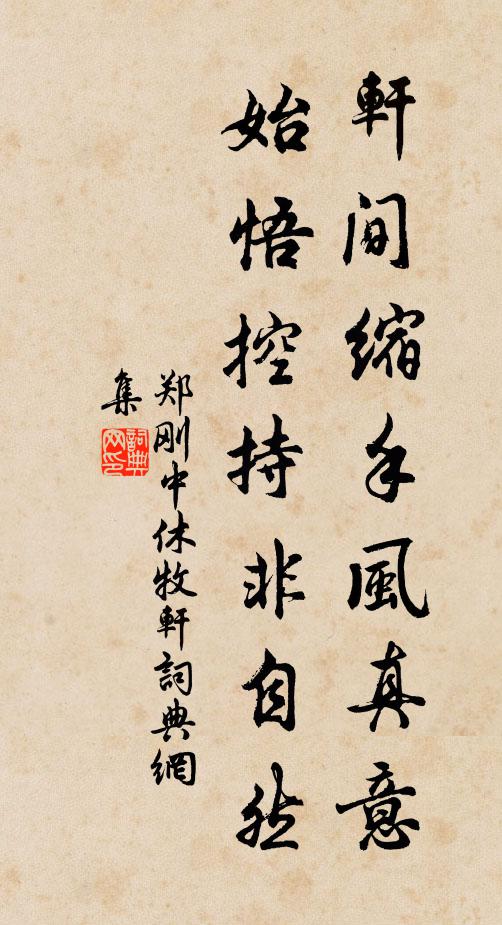 軒間縮手風真意
始悟控持非自然
郑刚中休牧軒詞典網
集
詞典网印